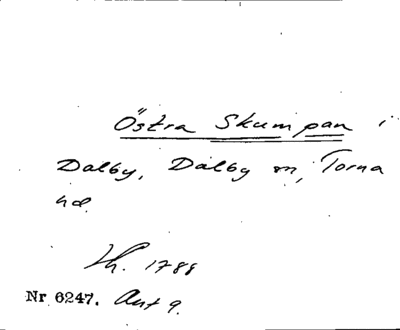 Östra Skumpan i
Dalby, Dalby sn, Torna
hd.
Lh. 1788
Nr 6247. Akt 9.